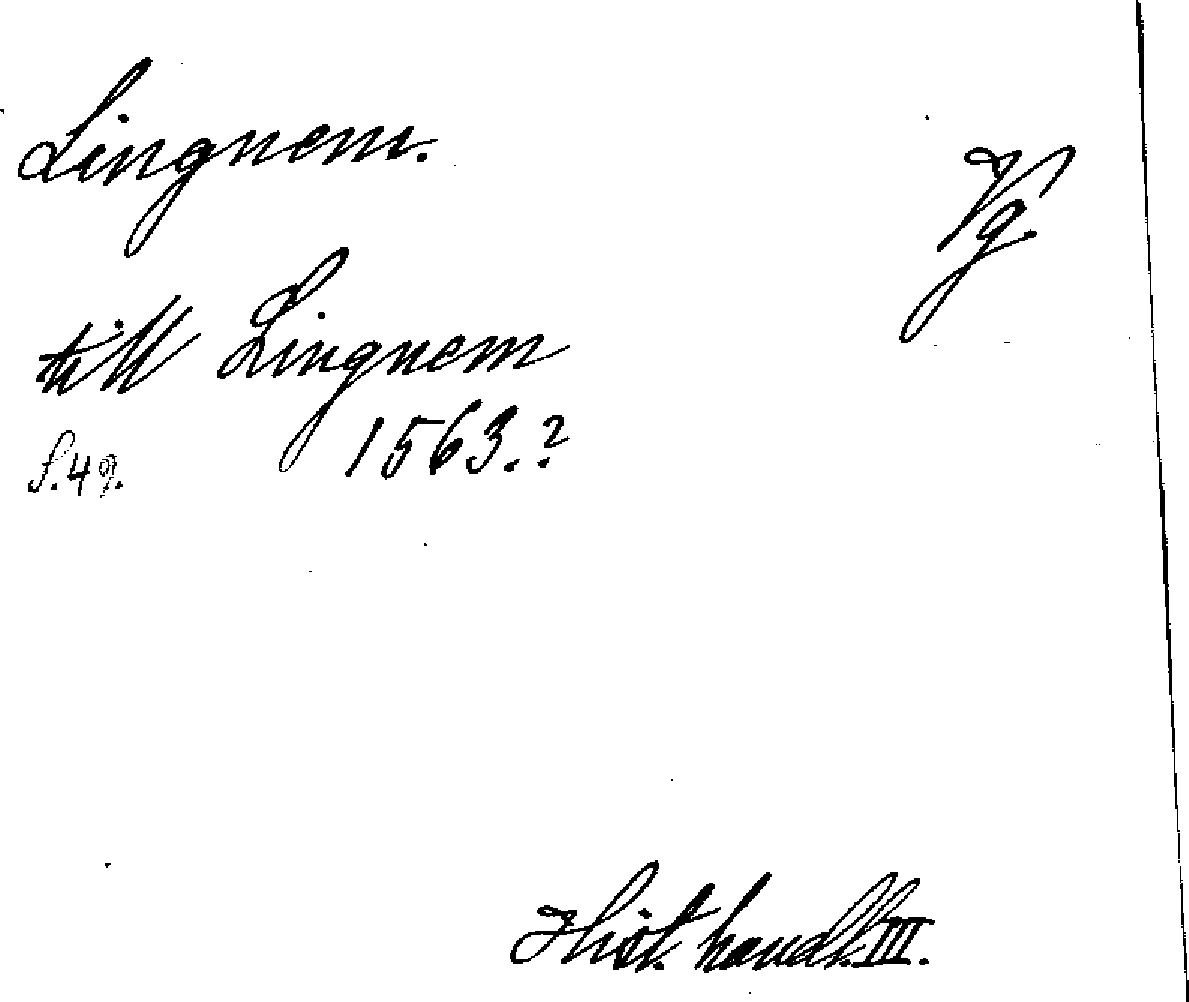 Lingnem.
Vg.
till Lingnem
1563.?
s. 49.
Hist. handl. III.